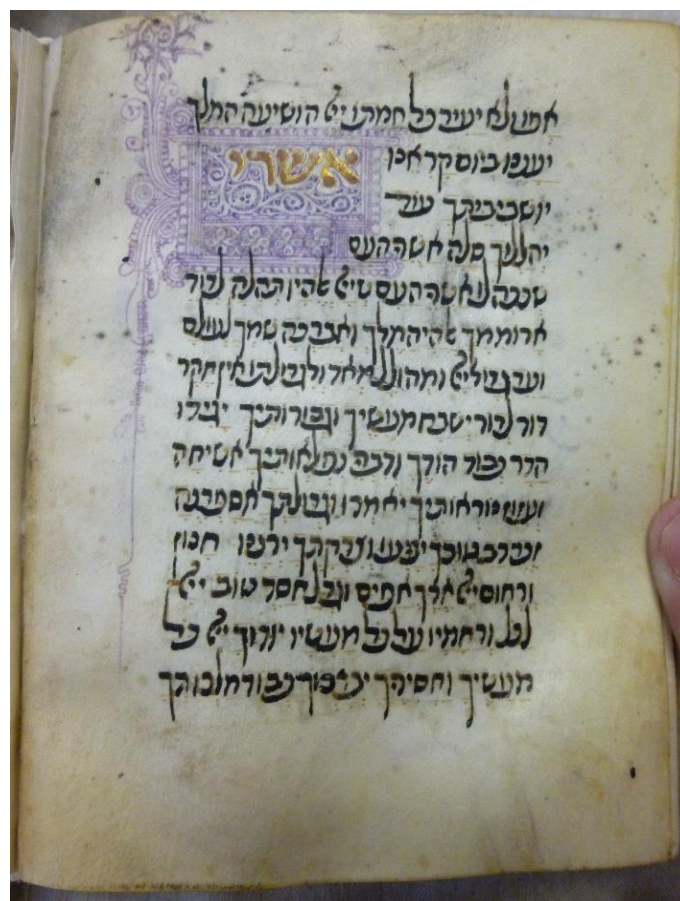 אפו ולא יעיר כל חמתו ייי הושיעה המלך
יעננו ביום קראנו
אשרי
יושבי ביתך עוד
יהללוך סלה אשרי העם
שככה לו אשרי העם שייי אלהיו תהלה לדוד
ארוממך אלהי המלך ואברכה שמך לעולם
ועד גדול ייי ומהולל מאד ולגדולתו אין חקר
דור לדור ישבח מעשיך וגבורותיך יגידו
הדר כבוד הודך ודברי נפלאותיך אשיחה
ועזוז נוראותיך יאמרו וגדולתך אספרנה
זכר רב טובך יביעו וצדקתך ירננו חנון
ורחום ייי ארך אפים וגדל חסד טוב ייי
לכל ורחמיו על כל מעשיו יודוך ייי כל
מעשיך וחסידיך יברכוך כבוד מלכותך